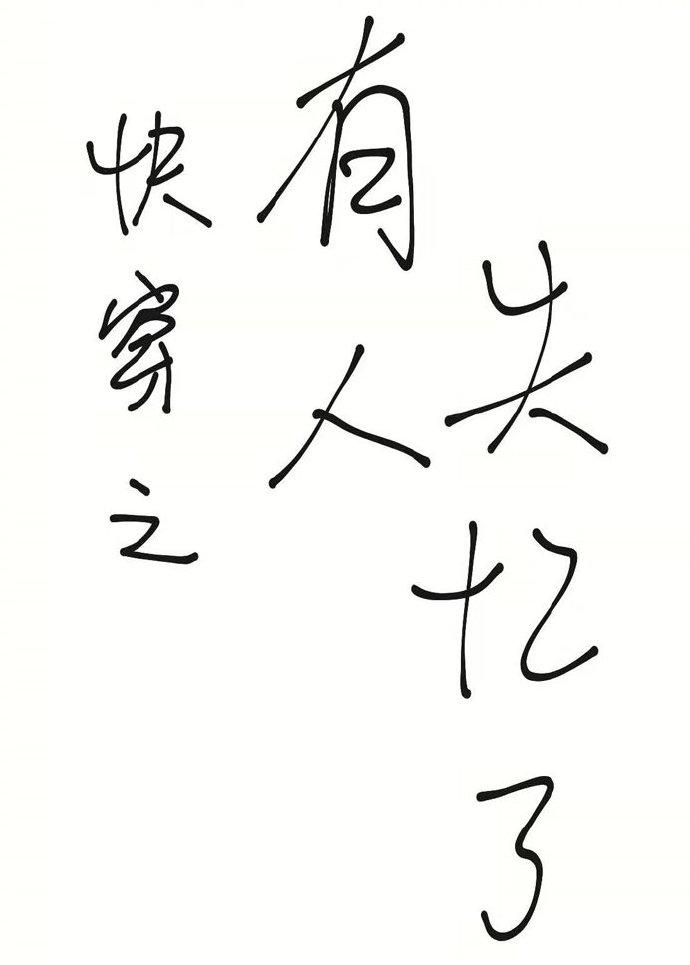 快穿之
有人
失忆了